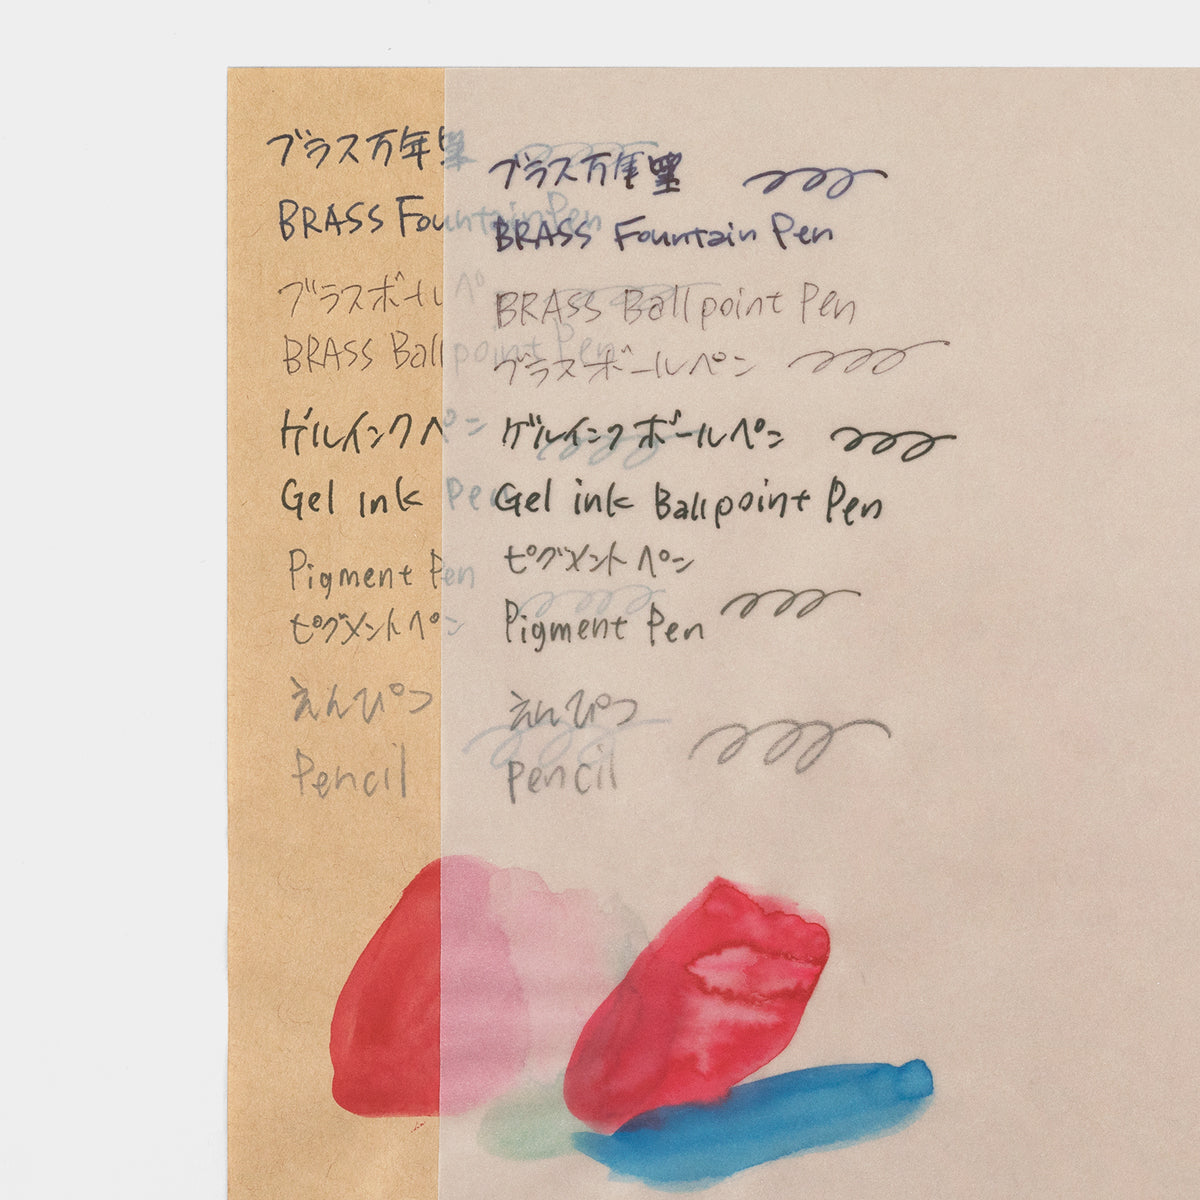 ブラス万年筆
BRASS Fountain Pen
ブラスボールペ
BRASS Ballpoint Pen
ゲルインクペン
Gel Ink Pen
Pigment Pen
ピグメントペン
えんぴつ
Pencil
ブラス万年筆
BRASS Fountain Pen
BRASS Ballpoint Pen
ブラスボールペン
ゲルインクボールペン
Gel ink Ballpoint Pen
ピグメントペン
Pigment Pen
えんぴつ
Pencil